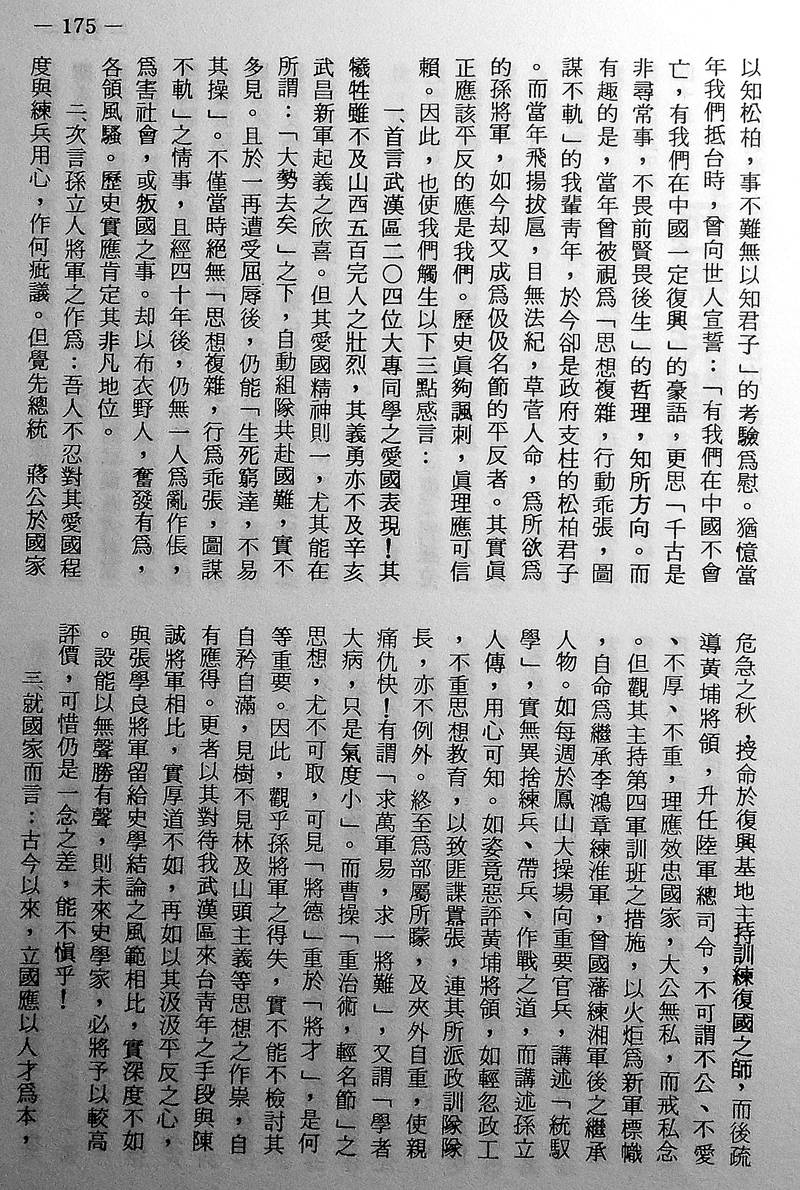 — 175 —
以知松柏，事不難無以知君子」的考驗爲慰。猶憶當
年我們抵台時，曾向世人宣誓：「有我們在中國不會
亡，有我們在中國一定復興」的豪語，更思「千古是
非尋常事，不畏前賢畏後生」的哲理，知所方向。而
有趣的是，當年曾被視爲「思想複雜，行動乖張，圖
謀不軌」的我輩青年，於今卻是政府支柱的松柏君子
。而當年飛揚拔扈，目無法紀，草菅人命，爲所欲爲
的孫將軍，如今却又成爲伋伋名節的平反者。其實眞
正應該平反的應是我們。歷史眞夠諷刺，眞理應可信
賴。因此，也使我們觸生以下三點感言：
一、首言武漢區二〇四位大專同學之愛國表現！其
犧牲雖不及山西五百完人之壯烈，其義勇亦不及辛亥
武昌新軍起義之欣喜。但其愛國精神則一，尤其能在
所謂：「大勢去矣」之下，自動組隊共赴國難，實不
多見。且於一再遭受屈辱後，仍能「生死窮達，不易
其操」。不僅當時絕無「思想複雜，行爲乖張，圖謀
不軌」之情事，且經四十年後，仍無一人爲亂作倀，
爲害社會，或叛國之事。却以布衣野人，奮發有爲，
各領風騷。歷史實應肯定其非凡地位。
二、次言孫立人將軍之作爲：吾人不忍對其愛國程
度與練兵用心，作何疵議。但覺先總統　蔣公於國家
危急之秋，授命於復興基地主持訓練復國之師，而後疏
導黃埔將領，升任陸軍總司令，不可謂不公、不愛
、不厚、不重，理應效忠國家，大公無私，而戒私念
。但觀其主持第四軍訓班之措施，以火炬爲新軍標幟
，自命爲繼承李鴻章練淮軍，曾國藩練湘軍後之繼承
人物。如每週於鳳山大操場向重要官兵，講述「統馭
學」，實無異捨練兵、帶兵、作戰之道，而講述孫立
人傳，用心可知。如姿竟惡評黃埔將領，如輕忽政工
，不重思想教育，以致匪諜囂張，連其所派政訓隊隊
長，亦不例外。終至爲部屬所矇，及夾外自重，使親
痛仇快！有謂「求萬軍易，求一將難」，又謂「學者
大病，只是氣度小」。而曹操「重治術，輕名節」之
思想，尤不可取，可見「將德」重於「將才」，是何
等重要。因此，觀乎孫將軍之得失，實不能不檢討其
自矜自滿，見樹不見林及山頭主義等思想之作祟，自
有應得。更者以其對待我武漢區來台青年之手段與陳
誠將軍相比，實厚道不如，再如以其汲汲平反之心，
與張學良將軍留給史學結論之風範相比，實深度不如
。設能以無聲勝有聲，則未來史學家，必將予以較高
評價，可惜仍是一念之差，能不愼乎！
三、就國家而言：古今以來，立國應以人才爲本，